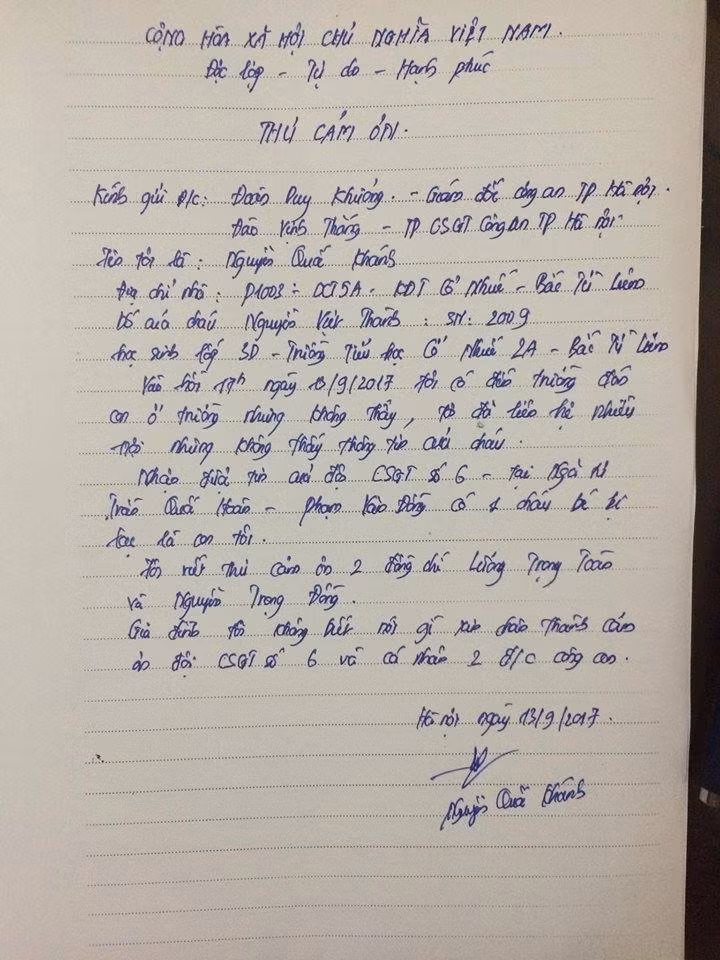 CỘNG HÒA XÃ HỘI CHỦ NGHĨA VIỆT NAM.
Độc lập - Tự do - Hạnh phúc
THƯ CẢM ƠN.
Kính gửi Đ/c: Đoàn Duy Khương. - Giám đốc công an TP Hà Nội.
Đào Vịnh Thắng - TP CSGT Công An TP Hà Nội
Tên tôi là: Nguyễn Quốc Khánh
Địa chỉ nhà: P1003 - OCT5A - KĐT Cổ Nhuế - Bắc Từ Liêm
Bố của cháu Nguyễn Việt Thành: SN: 2009
học sinh lớp 3D - Trường Tiểu học Cổ Nhuế 2A - Bắc Từ Liêm
Vào hồi 17h ngày 13/9/2017 tôi có đến trường đón
con ở trường nhưng không thấy, tôi đã liên hệ nhiều
nơi nhưng không thấy thông tin của cháu.
Nhận được tin của đội CSGT số 6 - tại Ngã tư
Trần Quốc Hoàn - Phạm Văn Đồng có 1 cháu bé bị
lạc là con tôi.
Tôi viết thư cảm ơn 2 đồng chí Lương Trọng Toàn
và Nguyễn Trọng Đông.
Gia đình tôi không biết nói gì xin chân thành cảm
ơn đội CSGT số 6 và cá nhân 2 đ/c công an.
Hà Nội ngày 13/9/2017.
Nguyễn Quốc Khánh